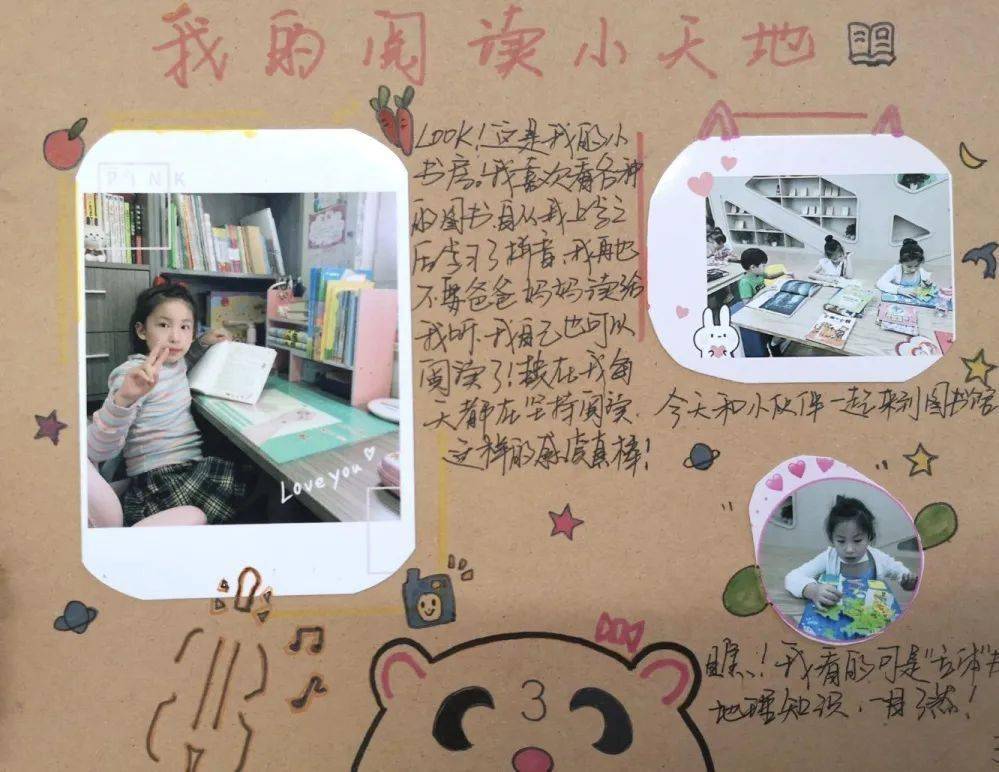 我的阅读小天地
LOOK!这是我的小
书房!我喜欢看各种
的图书自从我上学之
后学习了拼音.我再也
不要爸爸妈妈读给
我听.我自己也可以
阅读了!现在我每
天都在坚持阅读.
这样的感觉真棒!
PINK
Love you
今天和小伙伴一起来到图书馆
瞧!我看的可是
地理知识,一目了然!
3